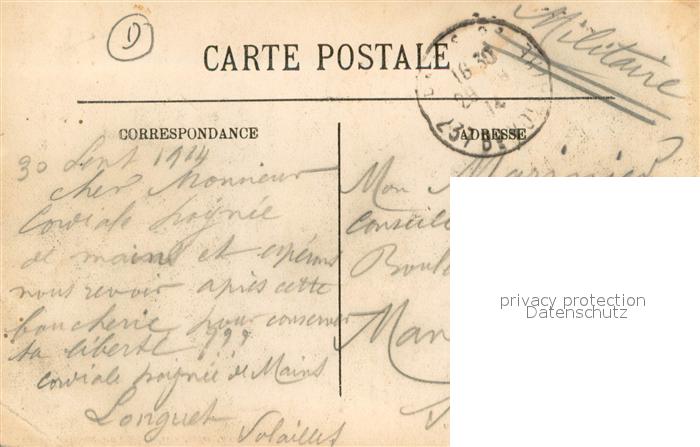 D
Militaire
CARTE POSTALE
16 30
14
CORRESPONDANCE
ADRESSE
30 Sept 1914
Cher Monsieur
Cordiale poignée
de mains et espérons
nous revoir après cette
boucherie pour conserver
sa liberté ???
Cordiale poignée de Mains
Longuet
Mon
Conseil
Boule
Man
privacy protection
Datenschutz